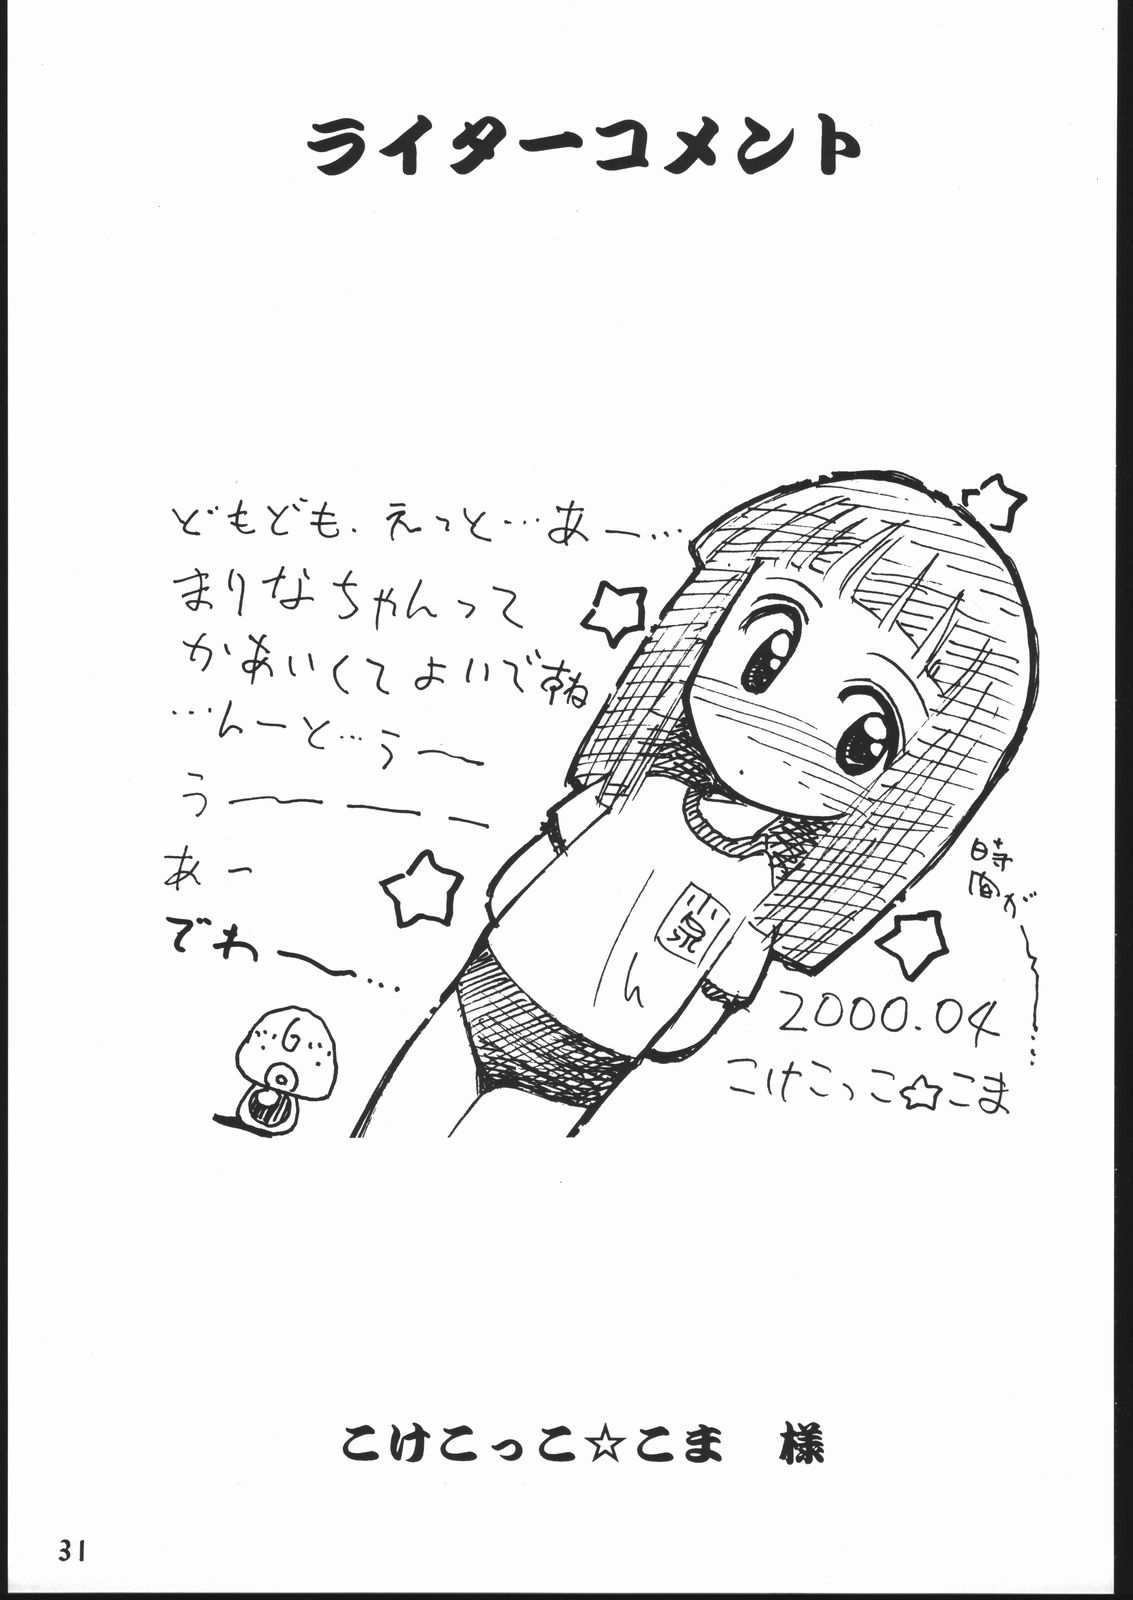 ライターコメント
どもども、えっと…あー…
まりなちゃんって
かあいくてよいですね
…んーと…う〜
う〜 ー ー
あー
でわー〜…
G
小泉
時間が〜…
2000.04
こけこっこ☆こま
こけこっこ☆こま 様
31